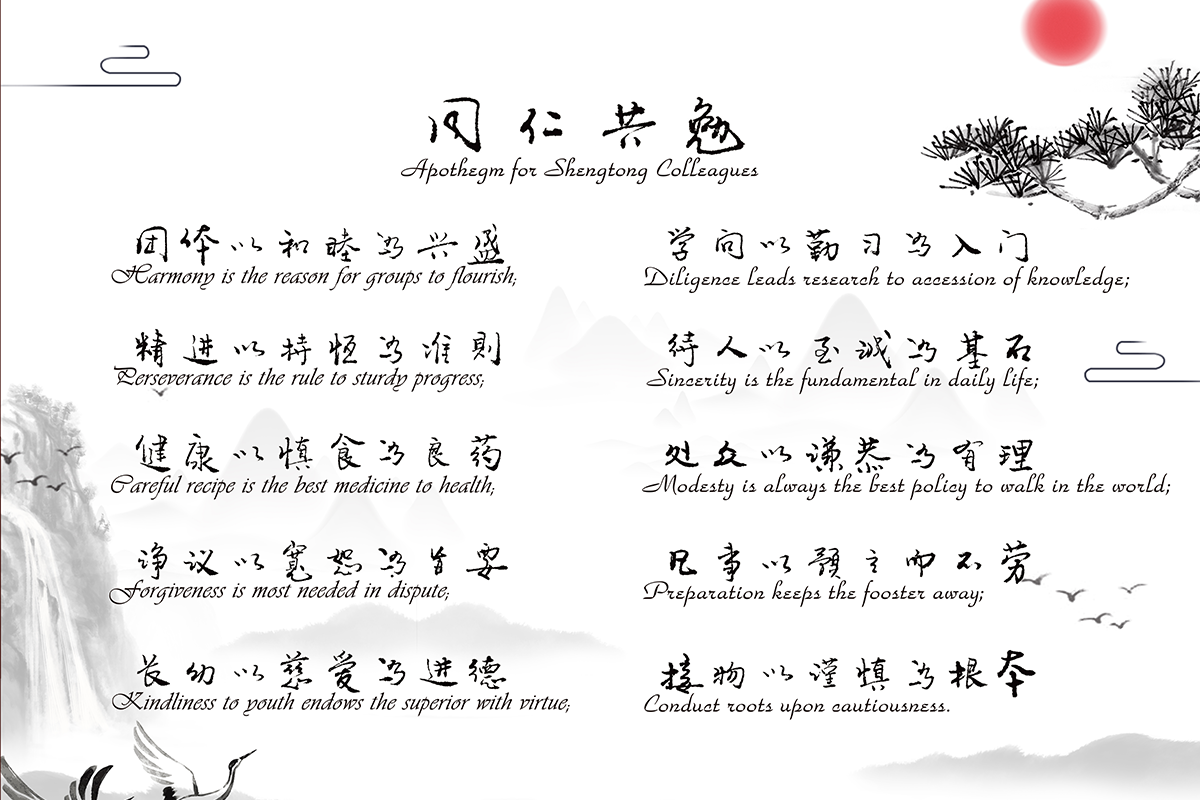 同仁共勉
Apothegm for Shengtong Colleagues
团体以和睦为兴盛
Harmony is the reason for groups to flourish;
精进以持恒为准则
Perseverance is the rule to sturdy progress;
健康以慎食为良药
Careful recipe is the best medicine to health;
诤议以宽恕为旨要
Forgiveness is most needed in dispute;
长幼以慈爱为进德
Kindliness to youth endows the superior with virtue;
学问以勤习为入门
Diligence leads research to accession of knowledge;
待人以至诚为基石
Sincerity is the fundamental in daily life;
处众以谦恭为有理
Modesty is always the best policy to walk in the world;
凡事以预立而不劳
Preparation keeps the fooster away;
接物以谨慎为根本
Conduct roots upon cautiousness.